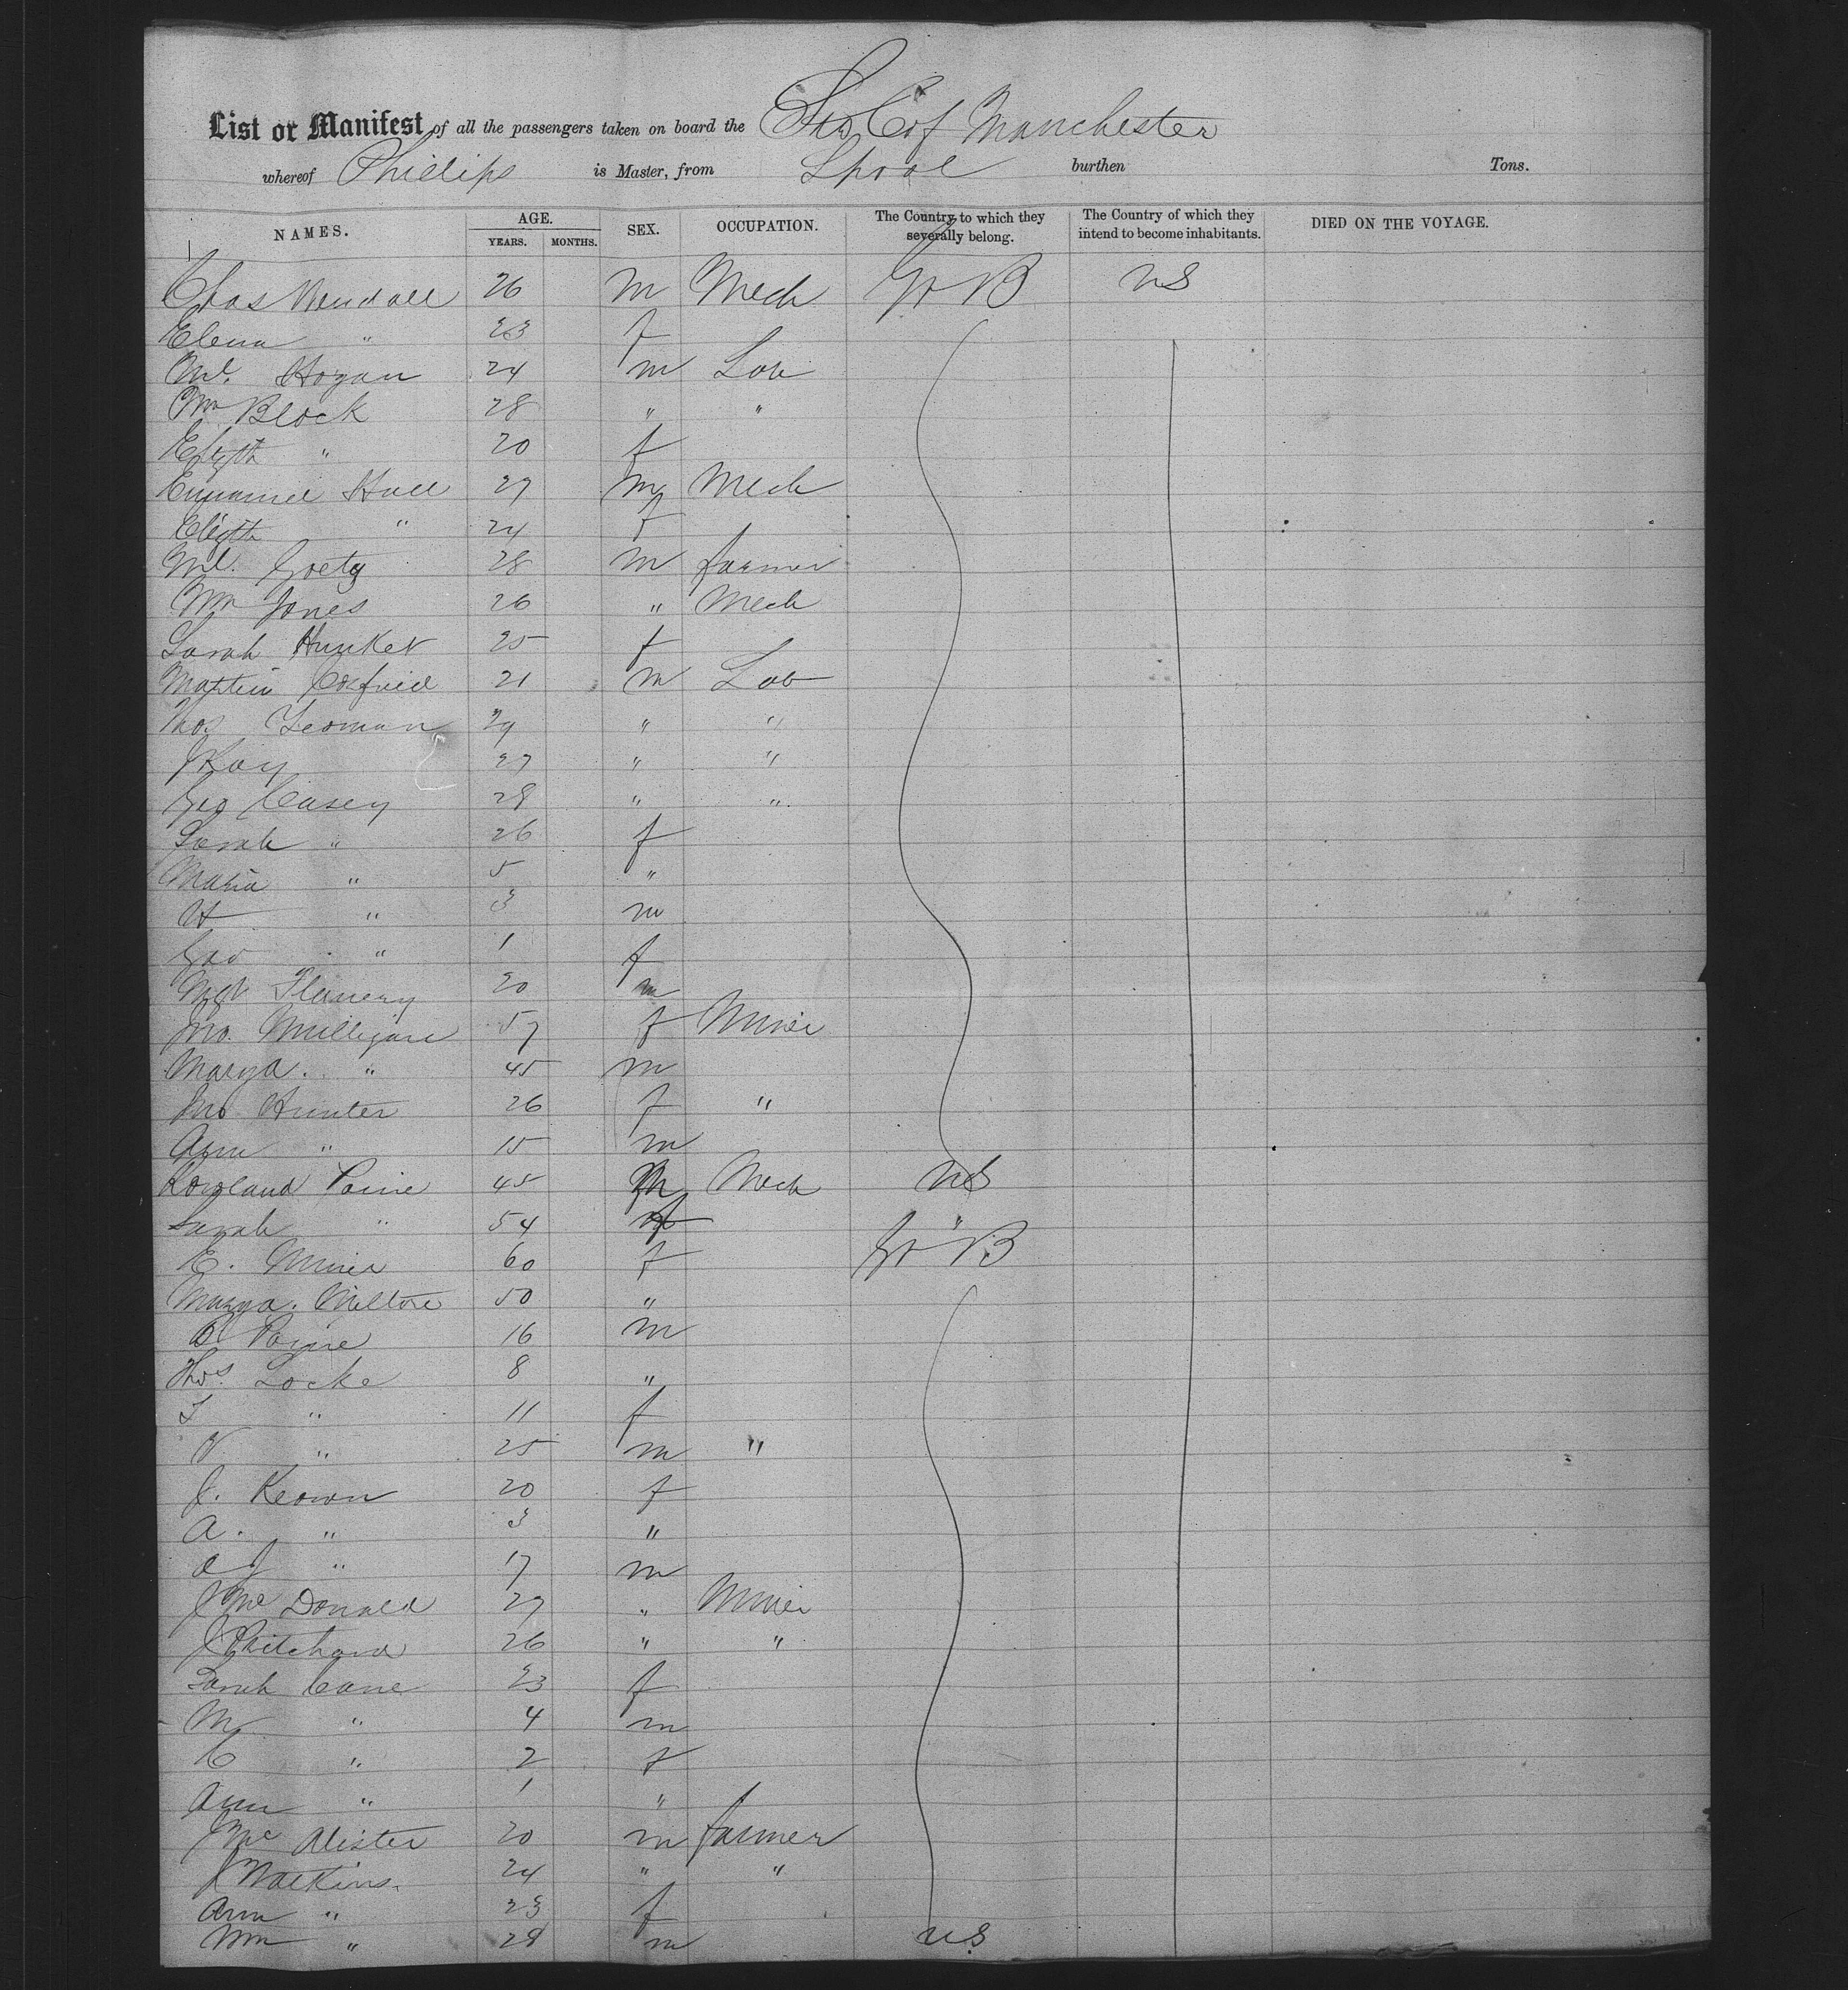 List or Manifest of all the passengers taken on board the Str C of Manchester
whereof Phillips is Master, from Lpool burthen Tons.
NAMES. AGE. YEARS. MONTHS. SEX. OCCUPATION. The Country to which they severally belong. The Country of which they intend to become inhabitants. DIED ON THE VOYAGE.
Chas 26 m Mech Gr B US
Elena " 23 f
Ml. Hogan 24 m Lab
Wm Block 28 " "
20 f
Hall 27 m Mech
Elizth " 24 f
Ml. Goetz 28 m farmer
Wm Jones 26 " Mech
Sarah Hunket 25 f
Martin 21 m Lab
Thos Yeoman 29 " "
J Kay 27 " "
Geo Casey 28 " "
Sarah " 26 f
Maria " 5 "
W " 3 m
Geo " 1 f
Mgt Flanery 20 m
Jno. Milligan 57 f Miner
Mary A. " 45 m
Jno Hunter 26 f "
Ann " 15 m
Rowland Paine 45 m Mech US
Sarah " 54 f "
E. Miner 60 f Gr B
Mary A. Milton 50 "
Paine 16 m
Thos. Locke 8 "
S " 11 f
" 25 m "
J. Keown 20 f
A. " 3 "
" 17 m
J McDonald 27 " Miner
J Pritchard 26 " "
Sarah Cane 23 f
M " 4 m
C " 2 f
Ann " 1 "
J McAlister 20 m farmer
J Watkins. 24 " "
Ann " 23 f
Wm " 28 m U.S.